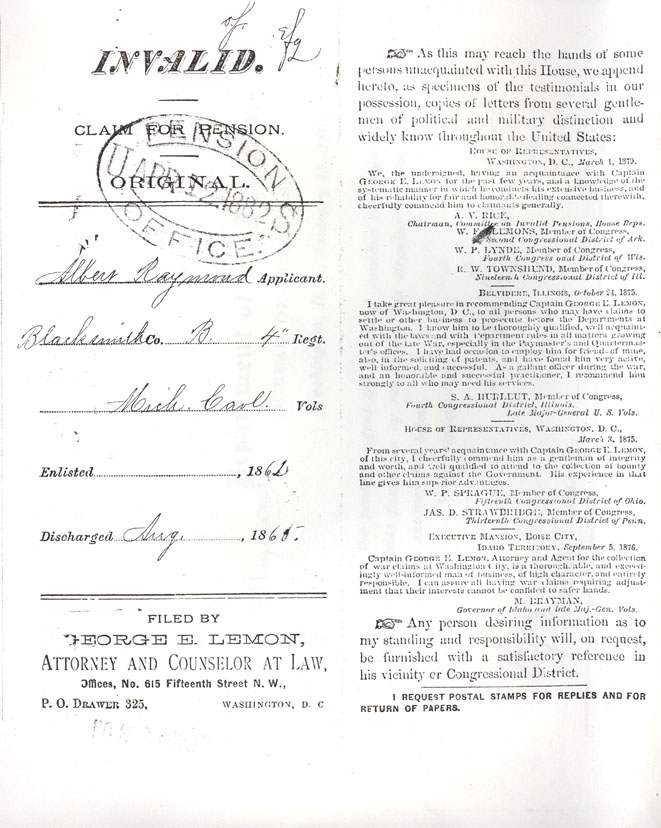 INVALID.
CLAIM FOR PENSION.
PENSION
APR 12 1882
OFFICE.
ORIGINAL.
Albert Raymond Applicant.
Blacksmith Co. B. 4" Regt.
Mich. Cavl Vols
Enlisted , 186
Discharged Aug. , 1865.
FILED BY
GEORGE E. LEMON,
ATTORNEY AND COUNSELOR AT LAW,
Offices, No. 615 Fifteenth Street N. W.,
P. O. DRAWER 325, WASHINGTON, D. C.
☞ As this may reach the hands of some
persons unacquainted with this House, we append
hereto, as specimens of the testimonials in our
possession, copies of letters from several gentle-
men of political and military distinction and
widely know throughout the United States:
HOUSE OF REPRESENTATIVES,
WASHINGTON, D. C., March 1, 1879.
We, the undersigned, having an acquaintance with Captain
GEORGE E. LEMON for the past few years, and a knowledge of the
systematic manner in which he conducts his extensive business, and
of his reliability for fair and honorable dealing connected therewith,
cheerfully commend him to claimants generally.
A. V. RICE,
Chairman, Committee on Invalid Pensions, House Reps.
W. F. SLEMONS, Member of Congress,
Second Congressional District of Ark.
W. P. LYNDE, Member of Congress,
Fourth Congressional District of Wis.
R. W. TOWNSHEND, Member of Congress,
Nineteenth Congressional District of Ill.
BELVIDERE, ILLINOIS, October 24, 1875.
I take great pleasure in recommending Captain GEORGE E. LEMON,
now of Washington, D. C., to all persons who may have claims to
settle or other business to prosecute before the Departments at
Washington. I know him to be thoroughly qualified, well acquaint-
ed with the laws and with Department rules in all matters growing
out of the late War, especially in the Paymaster's and Quartermas-
ter's offices. I have had occasion to employ him for friends of mine,
also, in the soliciting of patents, and have found him very active,
well informed, and successful. As a gallant officer during the war,
and an honorable and successful practitioner, I recommend him
strongly to all who may need his services.
S. A. HURLBUT, Member of Congress,
Fourth Congressional District, Illinois.
Late Major-General U. S. Vols.
HOUSE OF REPRESENTATIVES, WASHINGTON, D. C.,
March 3, 1875.
From several years' acquaintance with Captain GEORGE E. LEMON,
of this city, I cheerfully commend him as a gentleman of integrity
and worth, and well qualified to attend to the collection of bounty
and other claims against the Government. His experience in that
line gives him superior advantages.
W. P. SPRAGUE, Member of Congress,
Fifteenth Congressional District of Ohio.
JAS. D. STRAWBRIDGE, Member of Congress,
Thirteenth Congressional District of Penn.
EXECUTIVE MANSION, BOISE CITY,
IDAHO TERRITORY, September 5, 1876.
Captain GEORGE E. LEMON, Attorney and Agent for the collection
of war claims at Washington City, is a thorough, able, and exceed-
ingly well-informed man of business, of high character, and entirely
responsible. I can assure all having war claims requiring adjust-
ment that their interests cannot be confided to safer hands.
M. BRAYMAN,
Governor of Idaho and late Maj.-Gen. Vols.
☞ Any person desiring information as to
my standing and responsibility will, on request,
be furnished with a satisfactory reference in
his vicinity or Congressional District.
I REQUEST POSTAL STAMPS FOR REPLIES AND FOR
RETURN OF PAPERS.